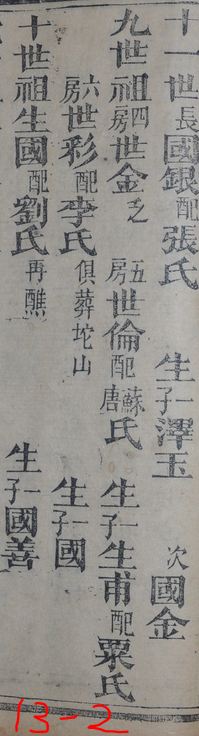 十一世長國銀配張氏 生子一澤玉 次國金
九世祖四房世金乏 五房世倫配蘇唐氏 生子一生甫配粟氏
六房世彩配李氏 俱葬坨山 生子一國
十世祖生國配劉氏再醮 生子一國善
13-2